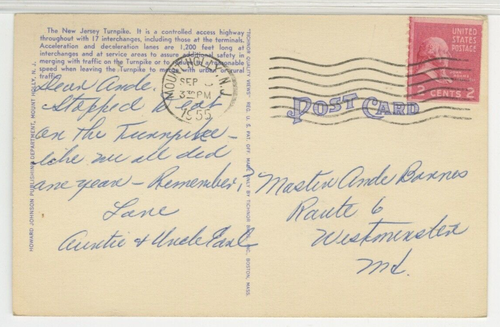 The New Jersey Turnpike. It is a controlled access highway
throughout with 17 interchanges, including those at the terminals.
Acceleration and deceleration lanes are 1,200 feet long at
interchanges and at service areas to assure additional safety in
merging with traffic on the Turnpike or to
speed when leaving the Turnpike to merge with urban or rural
traffic.
Dear Ande,
Stopped to eat
on the Turnpike –
like we all did
one year – Remember?
Love
Auntie & Uncle Earl
HOWARD JOHNSON PUBLISHING DEPARTMENT, MOUNT HOLLY, N. J.
TICHNOR QUALITY VIEWS, REG. U. S. PAT. OFF. MADE ONLY BY TICHNOR BROS., INC., BOSTON, MASS.
MOUNT HOLLY, N.J.
SEP
PM
1955
UNITED
STATES
POSTAGE
2 CENTS 2
POST CARD
Master Ande Bonnes
Route 6
Westminster
Md.